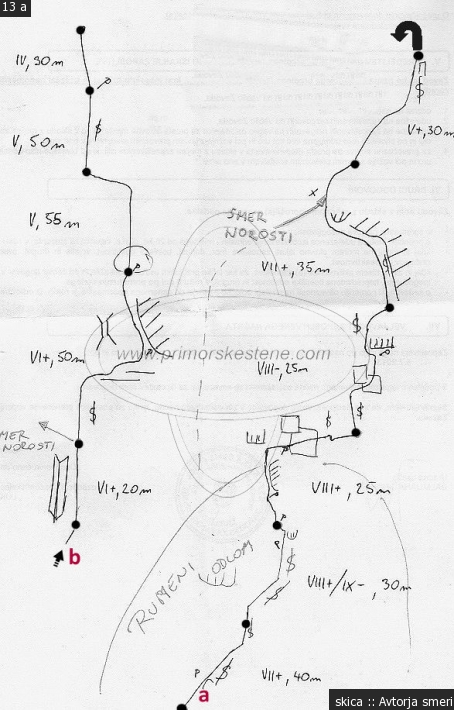 13 a
IV, 30m
V, 50m
V, 55m
VI+, 50m
SMER
NOROSTI
VI+, 20m
b
V+, 30m
X
SMER
NOROSTI
VII+, 35m
www.primorskestene.com
VIII-, 25m
VIII+, 25m
RUMENI ODLOM
VIII+/IX-, 30m
VII+, 40m
a
skica :: Avtorja smeri